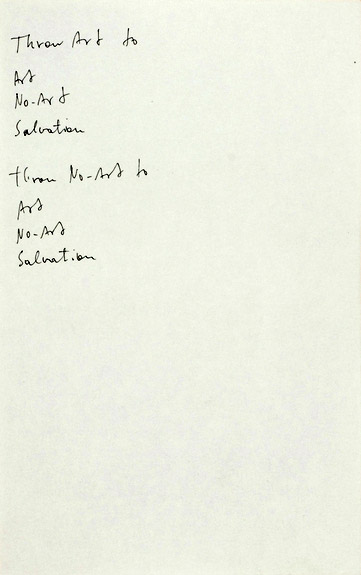 Throw Art to
Art
No-Art
Salvation
throw No-Art to
Art
No-Art
Salvation